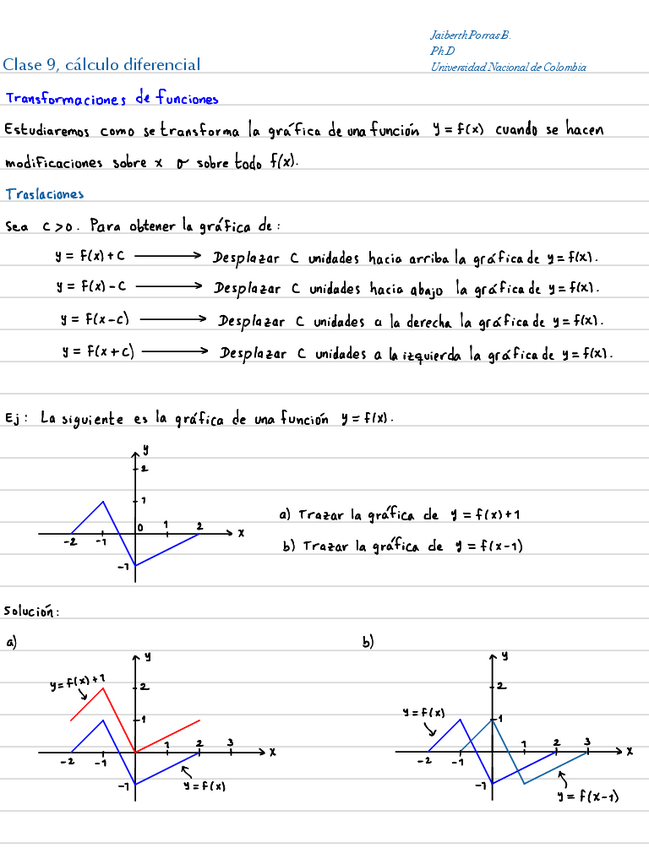 Jaiberth Porras B.
Ph.D
Universidad Nacional de Colombia
Clase 9, cálculo diferencial
Transformaciones de funciones
Estudiaremos como se transforma la gráfica de una función y = f(x) cuando se hacen
modificaciones sobre x o sobre todo f(x).
Traslaciones
Sea c > 0. Para obtener la gráfica de :
y = f(x) + c ⟶ Desplazar c unidades hacia arriba la gráfica de y = f(x).
y = f(x) - c ⟶ Desplazar c unidades hacia abajo la gráfica de y = f(x).
y = f(x-c) ⟶ Desplazar c unidades a la derecha la gráfica de y = f(x).
y = f(x+c) ⟶ Desplazar c unidades a la izquierda la gráfica de y = f(x).
Ej: La siguiente es la gráfica de una función y = f(x).
y
2
1
0 1 2 x
-2 -1
-1
a) Trazar la gráfica de y = f(x)+1
b) Trazar la gráfica de y = f(x-1)
Solución:
a)
y
y = f(x)+1
2
1
1 2 3 x
-2 -1
-1
y = f(x)
b)
y
2
y = f(x)
1
1 2 3 x
-2 -1
-1
y = f(x-1)